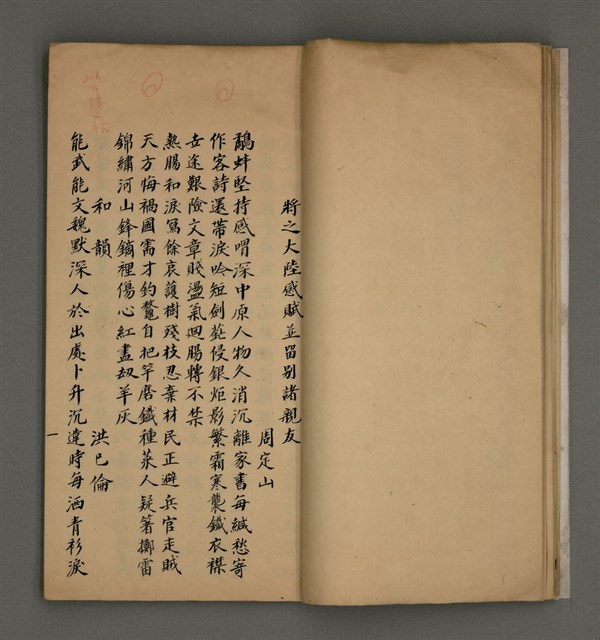 將之大陸感賦並留別諸親友
周定山
鷸蚌堅持感喟深中原人物久消沉離家書每緘愁寄
作客詩還帶淚吟短劍花侵銀炬影繁霜寒襲鐵衣襟
世途艱險文章賤盪氣迴腸轉不禁
熱腸和淚寫餘哀蔭樹殘枝忍棄材民正避兵官走賊
天方悔禍國需才釣鰲自把竿磨鐵種菜人疑箸擲雷
錦繡河山鋒鏑裡傷心紅盡劫羊灰
和韻
洪已倫
能武能文魏默深人於出處卜升沉違時每洒青衫淚
一